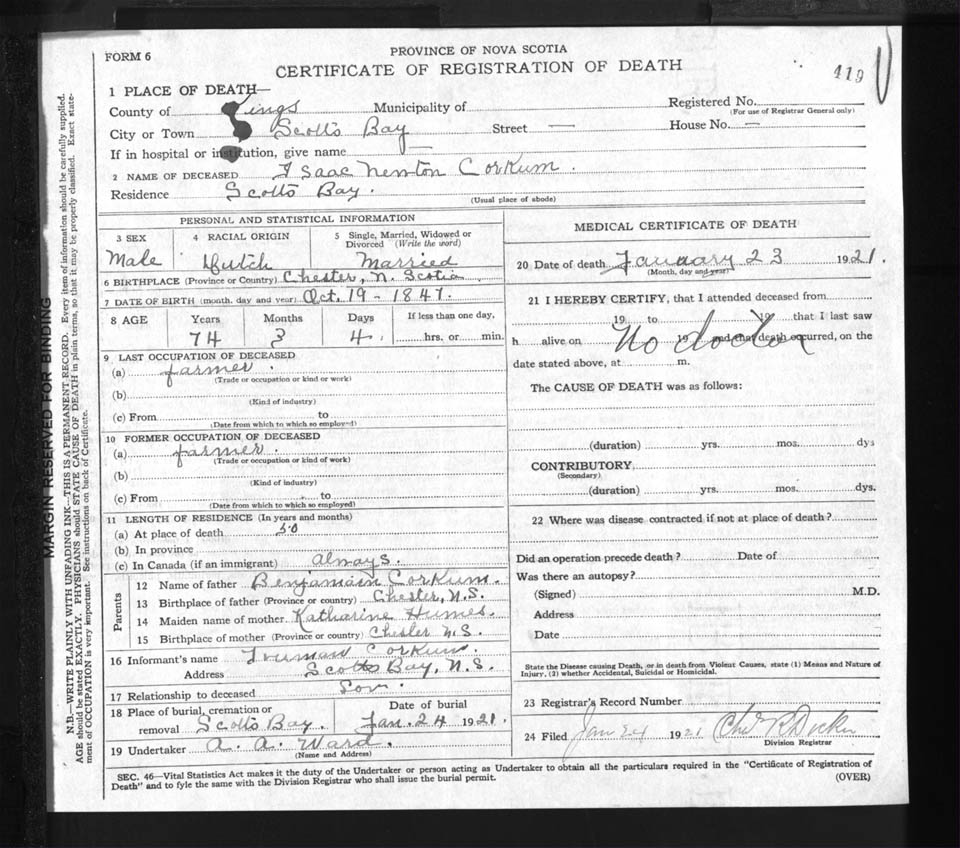 FORM 6
PROVINCE OF NOVA SCOTIA
CERTIFICATE OF REGISTRATION OF DEATH
419
1 PLACE OF DEATH—
County of Kings Municipality of Registered No.
(For use of Registrar General only)
City or Town Scotts Bay Street — House No. —
If in hospital or institution, give name —
2 NAME OF DECEASED Isaac Newton Corkum.
Residence Scotts Bay.
(Usual place of abode)
PERSONAL AND STATISTICAL INFORMATION
3 SEX 4 RACIAL ORIGIN 5 Single, Married, Widowed or Divorced (Write the word)
Male Dutch Married
6 BIRTHPLACE (Province or Country) Chester, N. Scotia
7 DATE OF BIRTH (month, day and year) Oct. 19 - 1847.
8 AGE Years Months Days If less than one day,
74 3 4. hrs. or min.
9 LAST OCCUPATION OF DECEASED
(a) farmer.
(Trade or occupation or kind or work)
(b)
(Kind of industry)
(c) From to
(Date from which to which so employed)
10 FORMER OCCUPATION OF DECEASED
(a) farmer.
(Trade or occupation or kind of work)
(b)
(Kind of industry)
(c) From to
(Date from which to which so employed)
11 LENGTH OF RESIDENCE (In years and months)
(a) At place of death 50
(b) In province
(c) In Canada (if an immigrant) always.
Parents
12 Name of father Benjamain Corkum.
13 Birthplace of father (Province or country) Chester, N.S.
14 Maiden name of mother Katharine Humes.
15 Birthplace of mother (Province or country) Chester N.S.
16 Informant's name Truman Corkum.
Address Scotts Bay, N.S.
17 Relationship to deceased Son.
18 Place of burial, cremation or removal Scotts Bay. Date of burial Jan. 24 1921.
19 Undertaker A. A. Ward.
(Name and Address)
MEDICAL CERTIFICATE OF DEATH
20 Date of death January 23 1921.
(Month, day and year)
21 I HEREBY CERTIFY, that I attended deceased from
19 to 19 that I last saw
h alive on 19 and that death occurred, on the
No doctor
date stated above, at m.
The CAUSE OF DEATH was as follows:
(duration) yrs. mos. dys
CONTRIBUTORY
(Secondary)
(duration) yrs. mos. dys.
22 Where was disease contracted if not at place of death?
Did an operation precede death? Date of
Was there an autopsy?
(Signed) M.D.
Address
Date
State the Disease causing Death, or in death from Violent Causes, state (1) Means and Nature of
Injury, (2) whether Accidental, Suicidal or Homicidal.
23 Registrar's Record Number
24 Filed Jan 24 1921
Division Registrar
SEC. 46—Vital Statistics Act makes it the duty of the Undertaker or person acting as Undertaker to obtain all the particulars required in the "Certificate of Registration of
Death" and to fyle the same with the Division Registrar who shall issue the burial permit. (OVER)
MARGIN RESERVED FOR BINDING
N.B.—WRITE PLAINLY WITH UNFADING INK—THIS IS A PERMANENT RECORD. Every item of information should be carefully supplied.
AGE should be stated EXACTLY. PHYSICIANS should STATE CAUSE OF DEATH in plain terms, so that it may be properly classified. Exact state-
ment of OCCUPATION is very important. See instructions on back of Certificate.